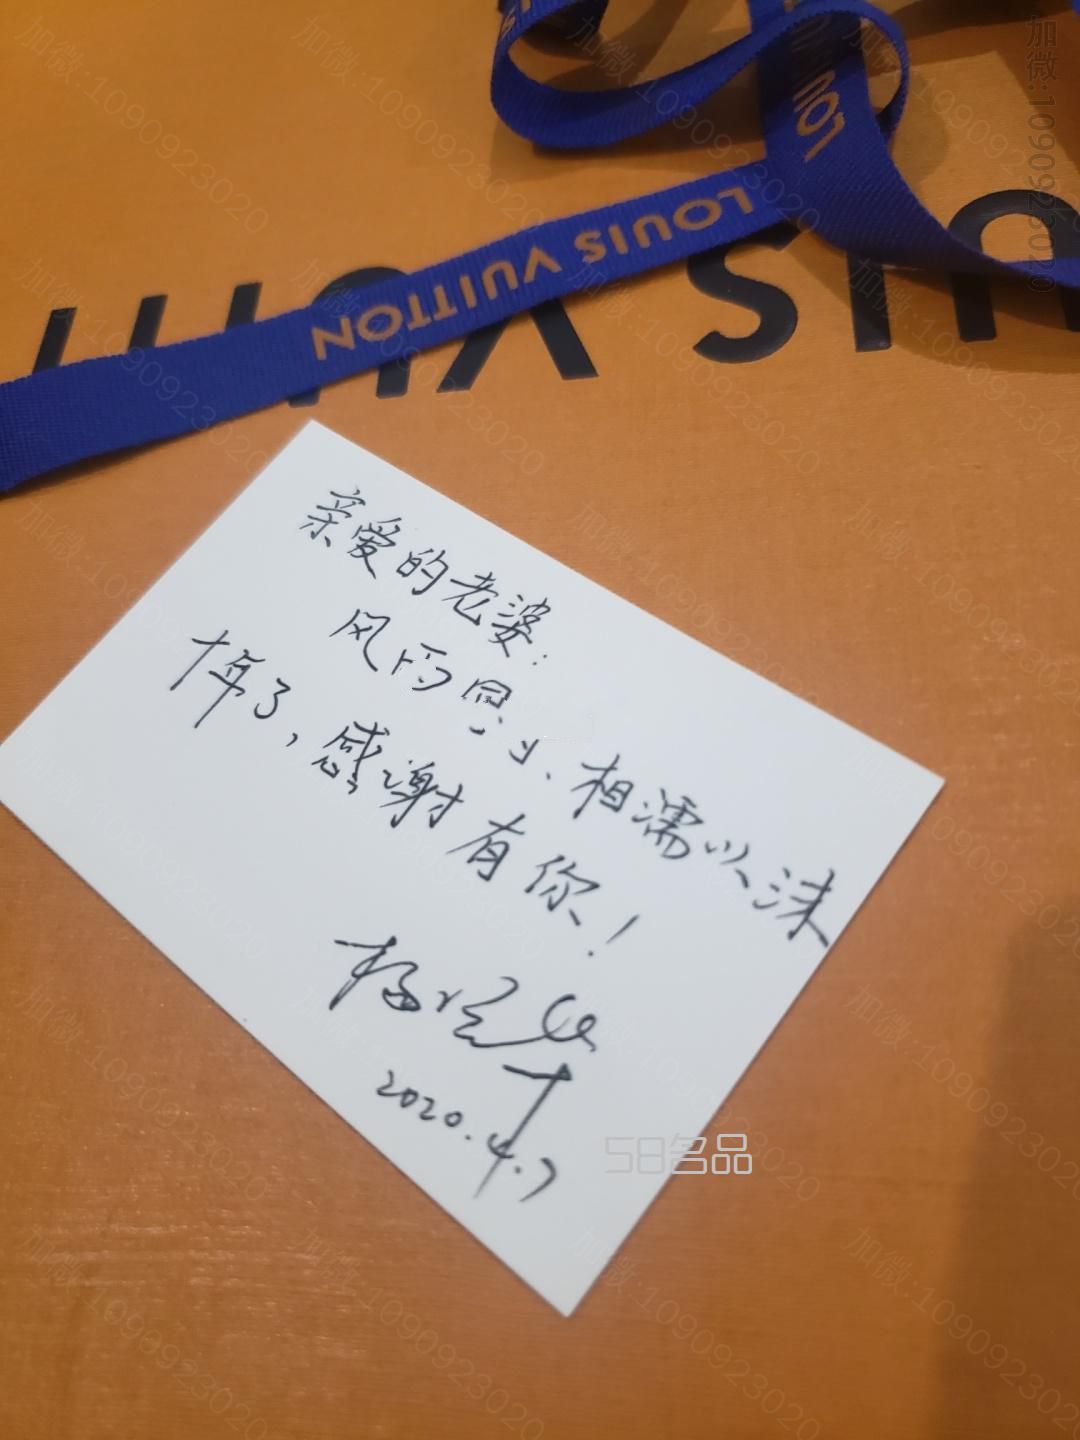 加微:1090923020
LOUIS VUITTON
LOUIS VUITTON
亲爱的老婆:
风雨同舟、相濡以沫
十年了,感谢有你!
2020.4.7
58名品